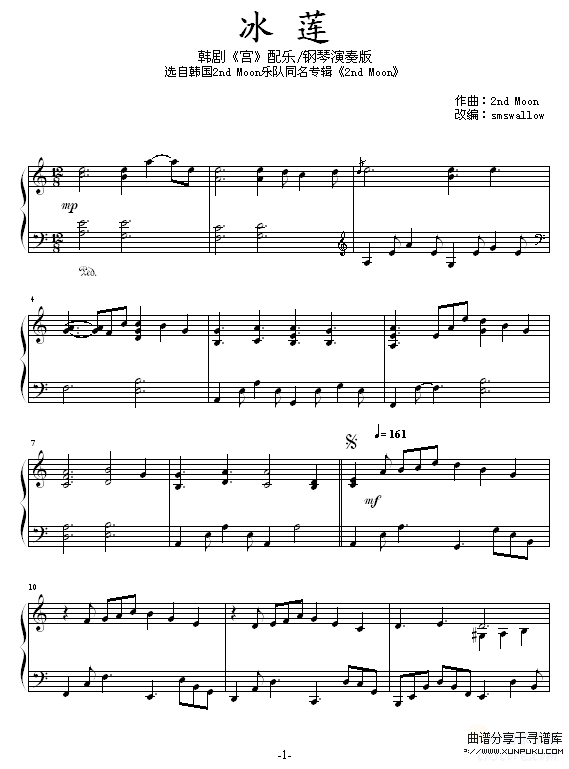 冰 莲
韩剧《宫》配乐/钢琴演奏版
选自韩国2nd Moon乐队同名专辑《2nd Moon》
作曲：2nd Moon
改编：smswallow
12 8
mp
12 8
Ped.
4
7
= 161
mf
10
曲谱分享于寻谱库
WWW.XUNPUKU.COM
-1-